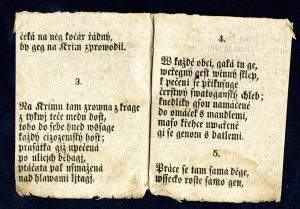 čeká na něg kočár žádný,
by geg na Krim zprowodil.
3.
Na Krimu tam zrowna z krage
z tykwj teče medu dost,
toho do sebe hned wssage
každý cizozemský host;
prasátka giž upečená
po ulicjch běhagj,
ptáčata pak smažená
nad hlawami ljtagj.
4.
W každé obci, gaká tu ge,
weřegný gest winný sklep,
k pečeni se přikusuge
čerstwý swatoganský chleb;
knedljky gsou namáčené
do omáček s mandlemi,
maso křehce uwařené
gj se genom s datlemi.
5.
Práce se tam sama děge,
wssecko roste samo gen,